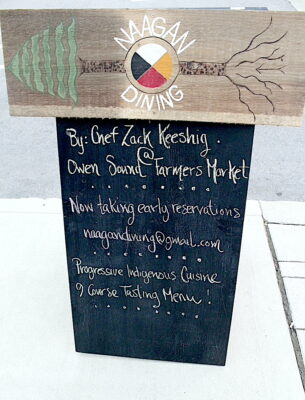 NAAGAN
DINING
By: Chef Zack Keeshig.
@
Owen Sound Farmers Market
Now taking early reservations
naagandining@gmail.com
Progressive Indigenous Cuisine
9 Course Tasting Menu!